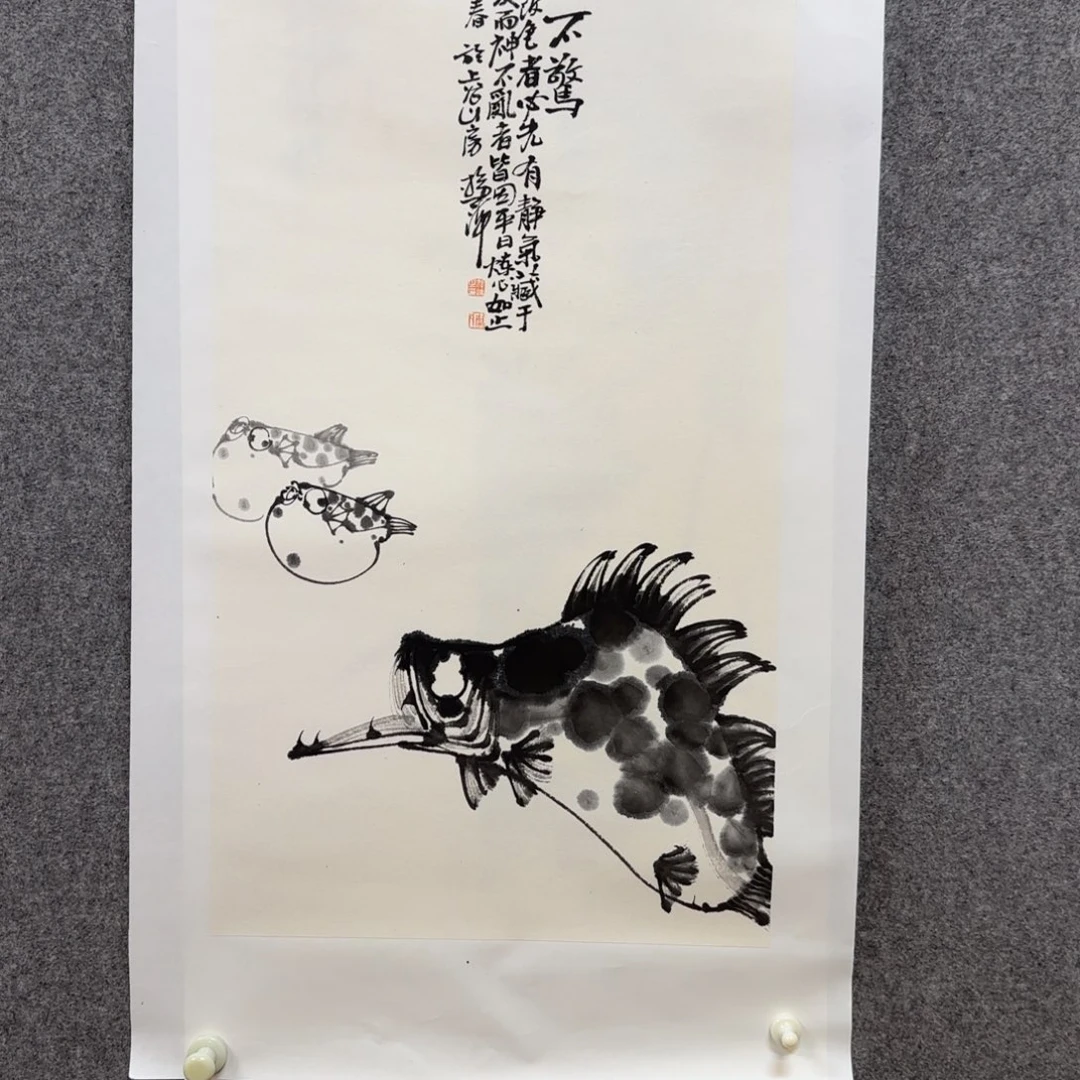 不驚
色者必先有靜氣藏于
而神不亂者皆因平日煉心如止
春於上谷山房